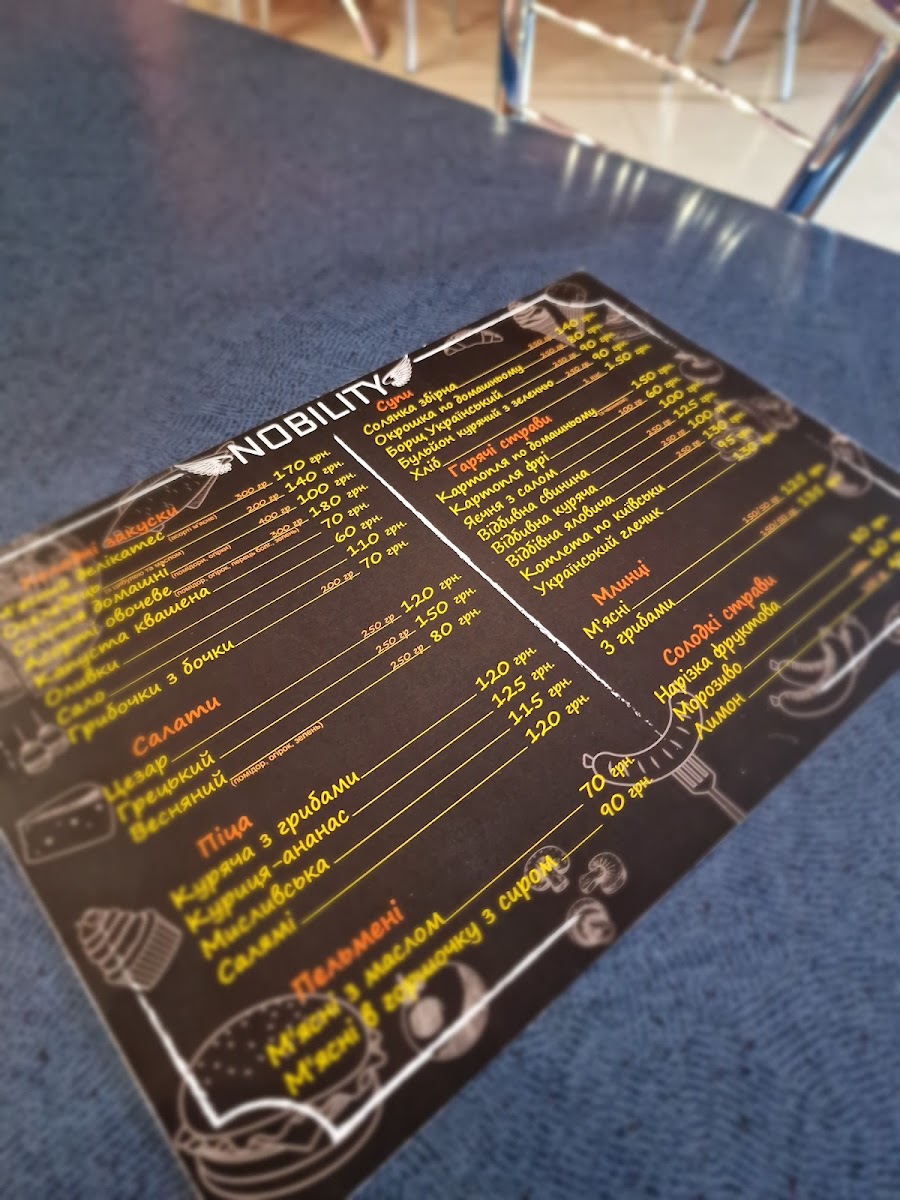 NOBILITY
закуски
делікатес 300 гр 170 грн.
200 гр 140 грн.
домашні 400 гр 100 грн.
овочеве (помідор, огірок, перець болг., зелень) 300 гр 180 грн.
Капуста квашена 70 грн.
Оливки 60 грн.
Сало 110 грн.
Грибочки з бочки 200 гр 70 грн.
Салати
Цезар 250 гр 120 грн.
Грецький 250 гр 150 грн.
Весняний (помідор, огірок, зелень) 250 гр 80 грн.
Піца
Куряча з грибами 120 грн.
Куриця-ананас 125 грн.
Мисливська 115 грн.
Салямі 120 грн.
Пельмені
М'ясні з маслом 70 грн.
М'ясні в горшочку з сиром 90 грн.
Супи
Солянка збірна 250 гр 140 грн.
Окрошка по домашньому 250 гр 80 грн.
Борщ Український 250 гр 90 грн.
Бульйон курячий з зеленню 250 гр 90 грн.
Хліб 1.50 грн.
Гарячі страви
Картопля по домашньому 150 грн.
Картопля фрі 100 гр 60 грн.
Яєчня з салом 100 грн.
Відбивна свинина 250 гр 125 грн.
Відбивна куряча 250 гр 100 грн.
Відбівна яловича 250 гр 130 грн.
Котлета по київськи 95 грн.
Український глечик 130 грн.
Млинці
М'ясні 150/50 гр 120 грн.
З грибами 150/50 гр
Солодкі страви
Нарізка фруктова
Морозиво
Лимон